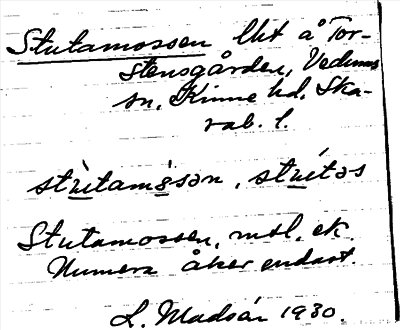 Stutamossen lht å Tor-
stensgården, Vedums
sn, Kinne hd, Ska-
rab. l.
stùtamåsən, stútəs
Stutamossen, msl. ek.
Numera åker endast.
L. Madsén 1930.